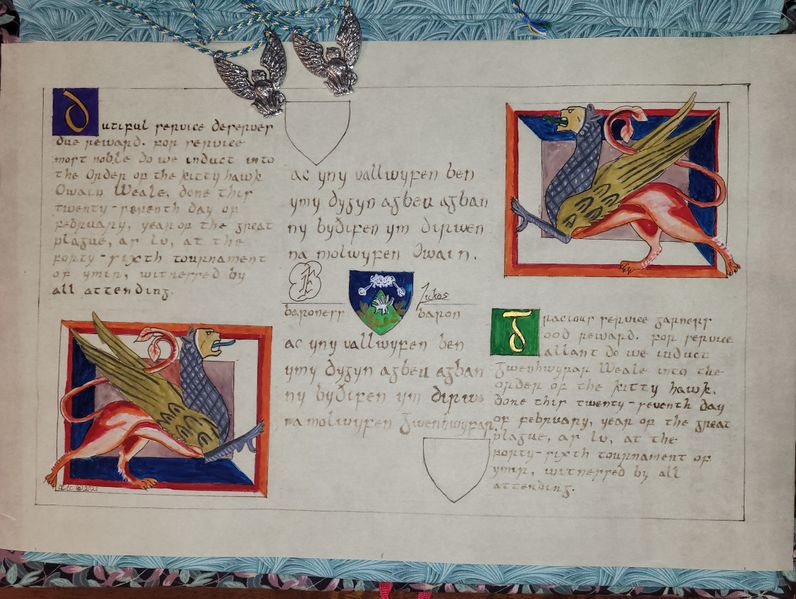 dutiful service deserves
due reward. for service
most noble do we induct into
the Order of the Kitty hawk
Owain Weale, done this
twenty-seventh day of
february, year of the great
plague, as lv, at the
forty-sixth tournament
of ymir, witnessed by
all attending.
ac yny vallwyfen hen
ymy dygyn agheu aghan
ny bydifen ym dirwen
na molwyfen Owain.
baroness baron
ac yny vallwyfen hen
ymy dygyn agheu aghan
ny bydifen ym dirwe
na molwyfen Gwenhwyfar.
Gracious service garners
ood reward. for service
allant do we induct
Gwenhwyfar Weale into the
order of the kitty hawk,
done this twenty-seventh day
of february, year of the great
plague, as lv, at the
forty-sixth tournament of
ymir, witnessed by all
attending.